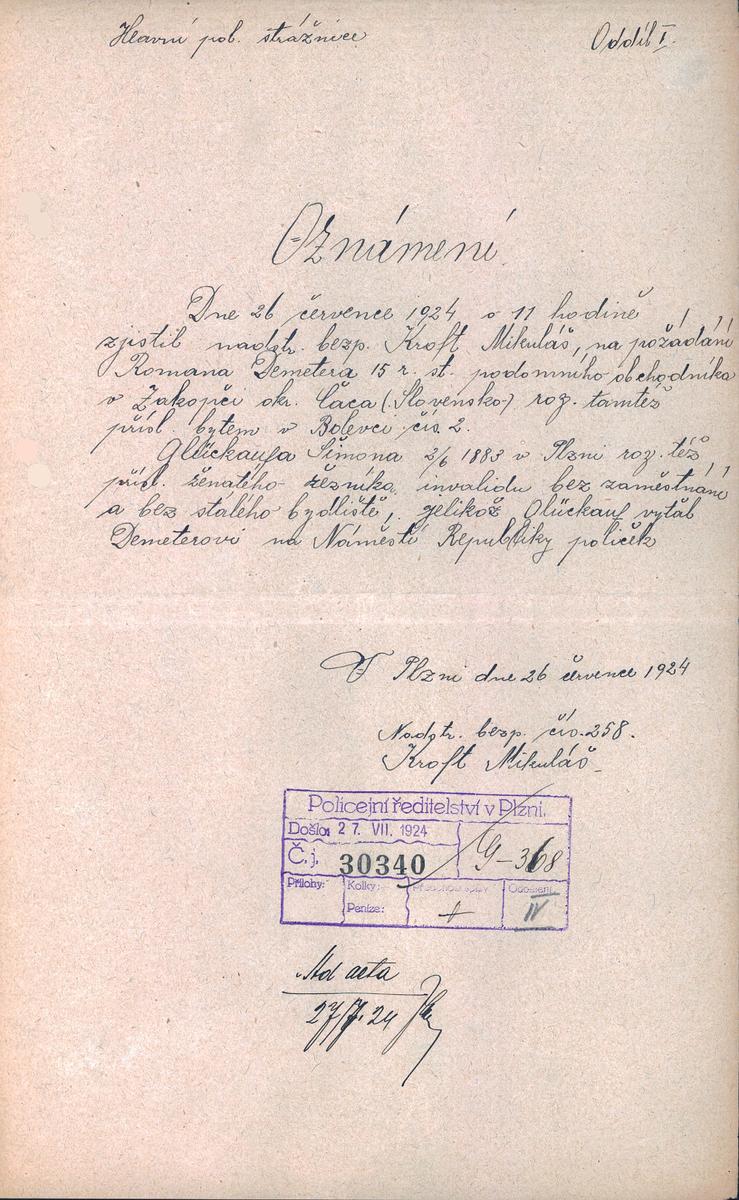 Hlavní pol. strážnice
Oddíl I.
Oznámení
Dne 26 července 1924 o 11 hodině
zjistil nadstr. bezp. Kroft Mikuláš, na požádání
Romana Demetera 15 r. st. podomního obchodníka
v Zakopči okr. Čaca (Slovensko) roz. tamtéž
přísl. bytem v Bolevci čís. 2.
Glückaufa Šimona 2/6 1883 v Plzni roz. též
přísl. ženatého řezníka, invalidu bez zaměstnání
a bez stálého bydliště, jelikož Glückauf vytál
Demeterovi na Náměstí Republiky políček
V Plzni dne 26 července 1924
Nadstr. bezp. čís. 258.
Kroft Mikuláš
Policejní ředitelství v Plzni.
Došlo: 27. VII. 1924
Č. j. 30340
G-368
Přílohy:
Kolky:
Předchozí spisy
Oddělení
Peníze:
+
IV
Ad acta
27/7. 24